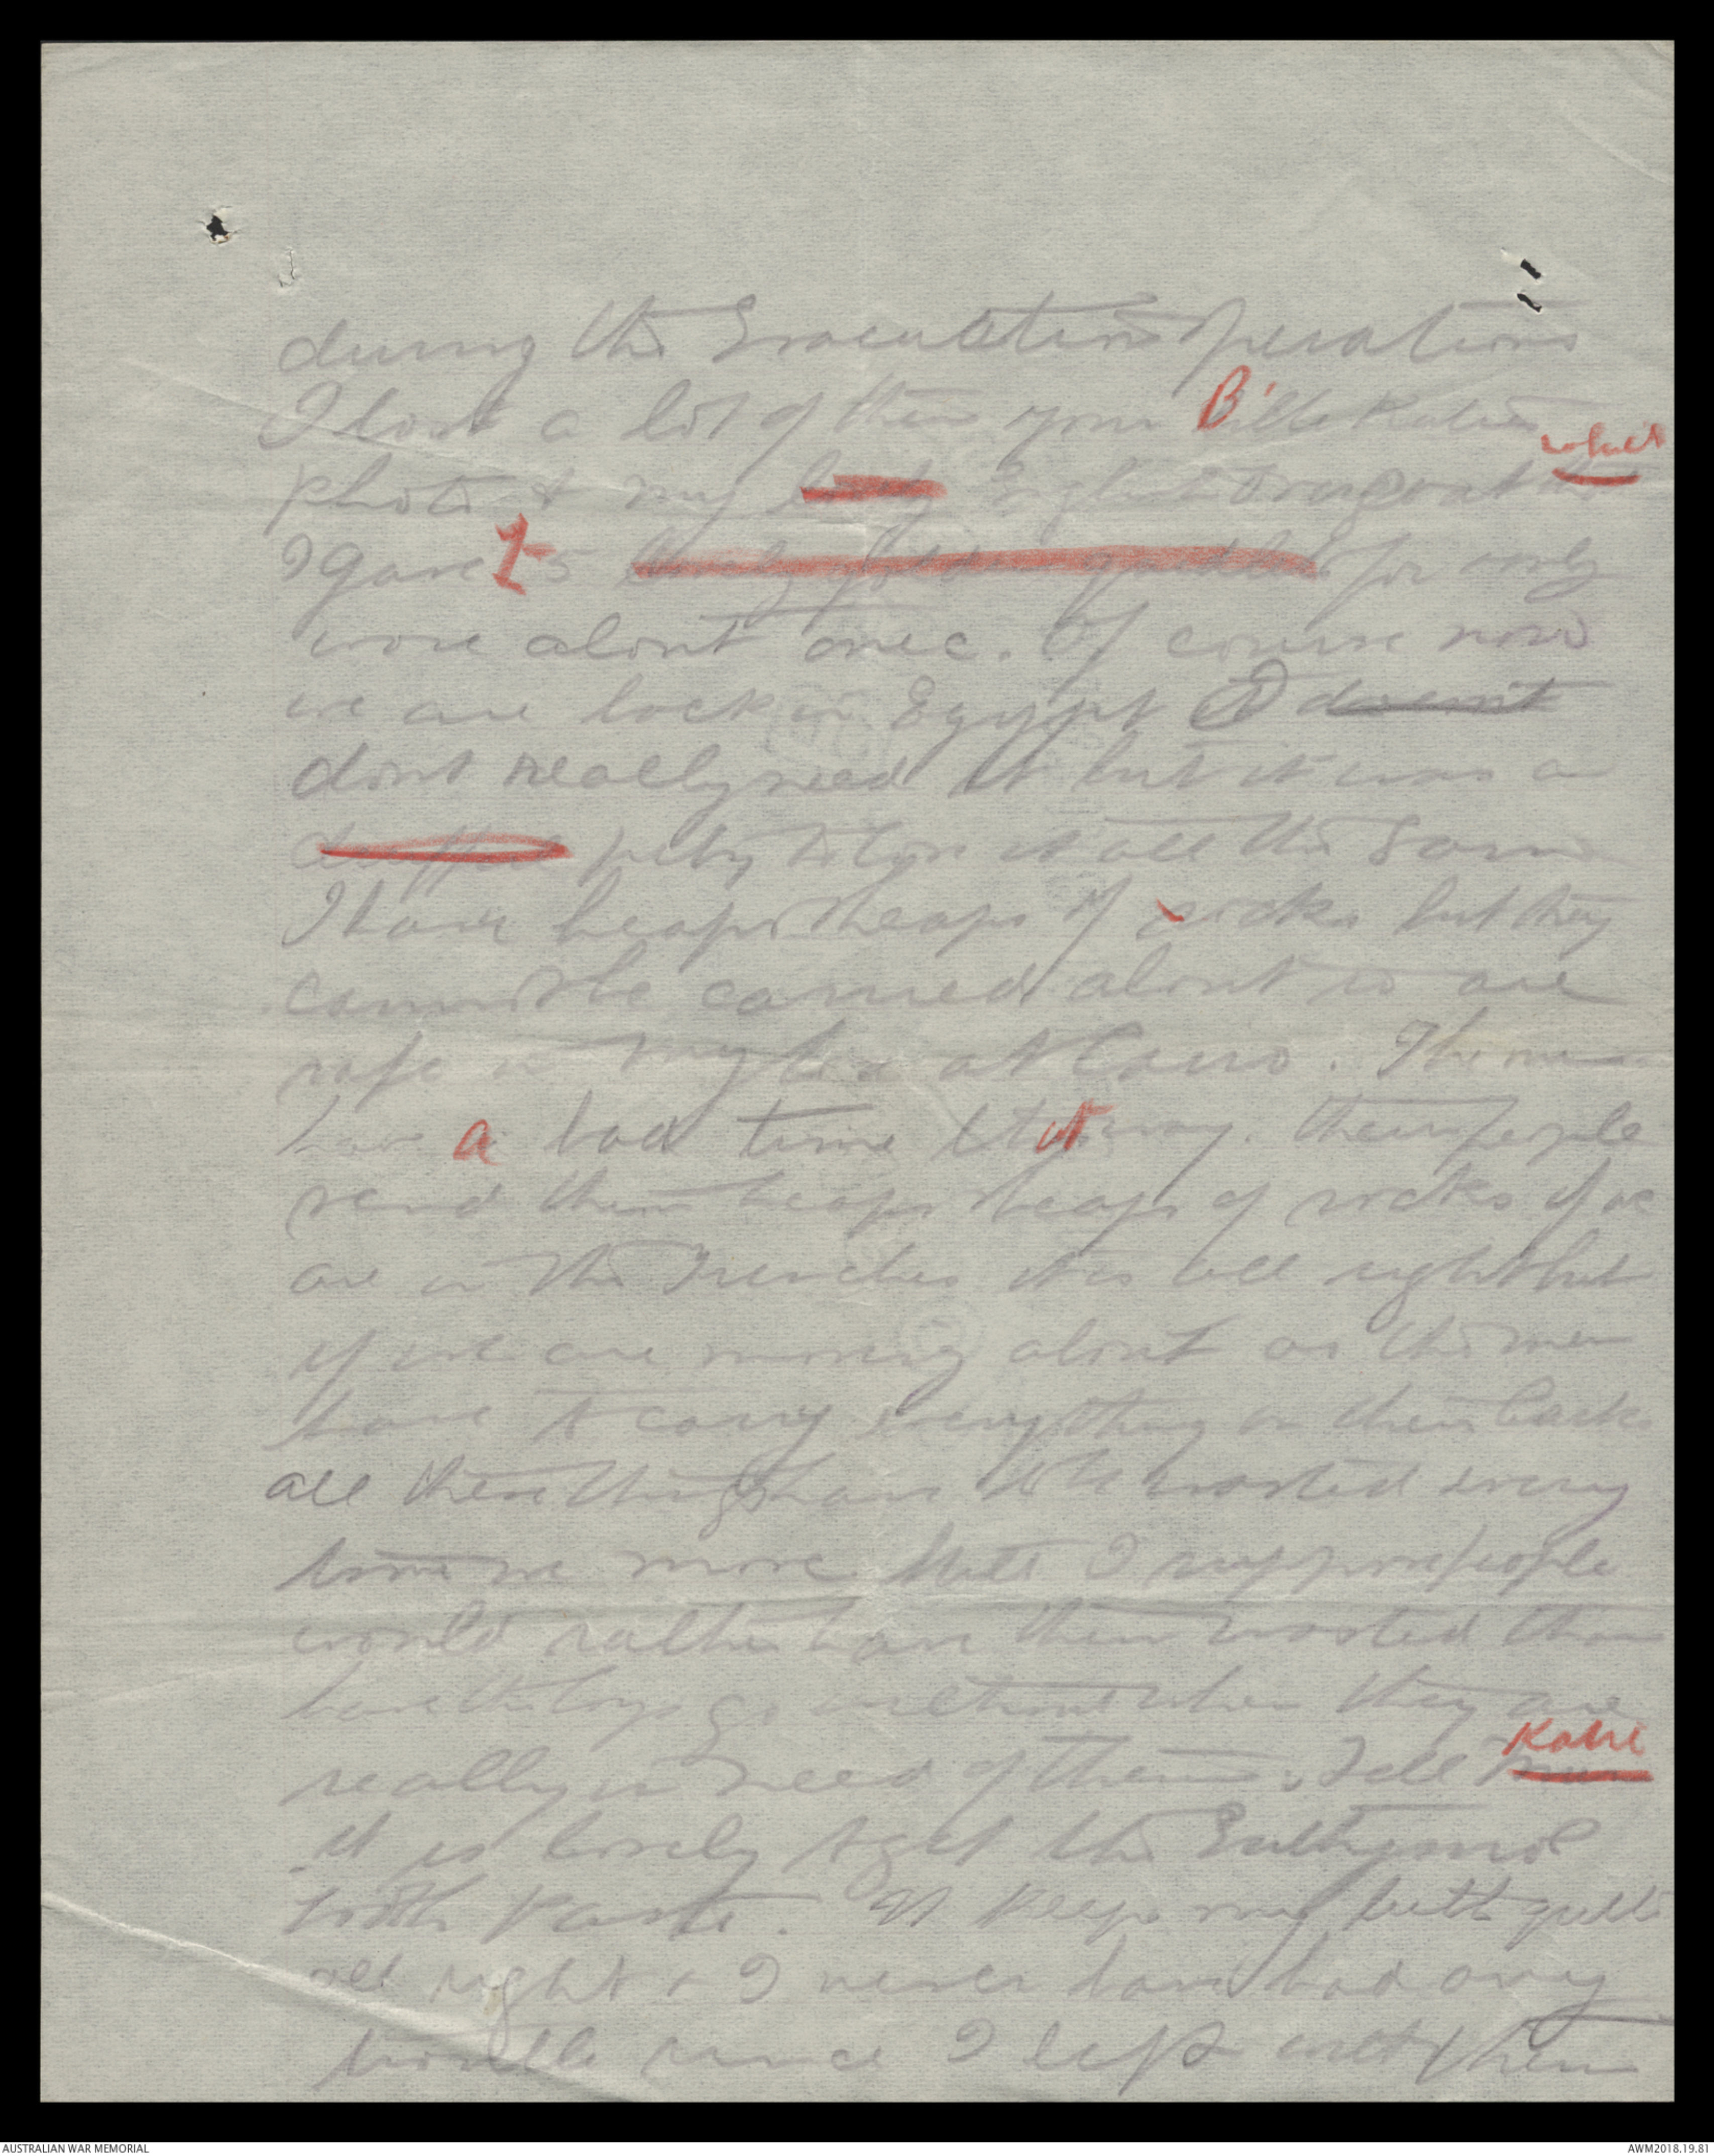 during the Evacuation operations
I lost a lot of them your B'ille Katie's
photo & my English Trenchcoat which
I gave £5 for only
wore about once. Of course now
we are back in Egypt I doesn't
dont really need it but it was a
pity to lose it all the same
I have heaps & heaps of socks but they
cannot be carried about so are
safe in my box at Cairo. The men
have a bad time it way. their people
send them heaps & heaps of socks if we
are in the Trenches it is all right but
if we are moving about as the men
have to carry everything on their backs
all these things have to be wasted every
time we move. Still I suppose people
would rather have them wasted than
have the boys go without when they are
really in need of them. Tell Katie
it is lovely to get the Euthymol
tooth paste. It keeps my teeth quite
all right & I never have had any
trouble since I left with them
AUSTRALIAN WAR MEMORIAL
AWM2018.19.81